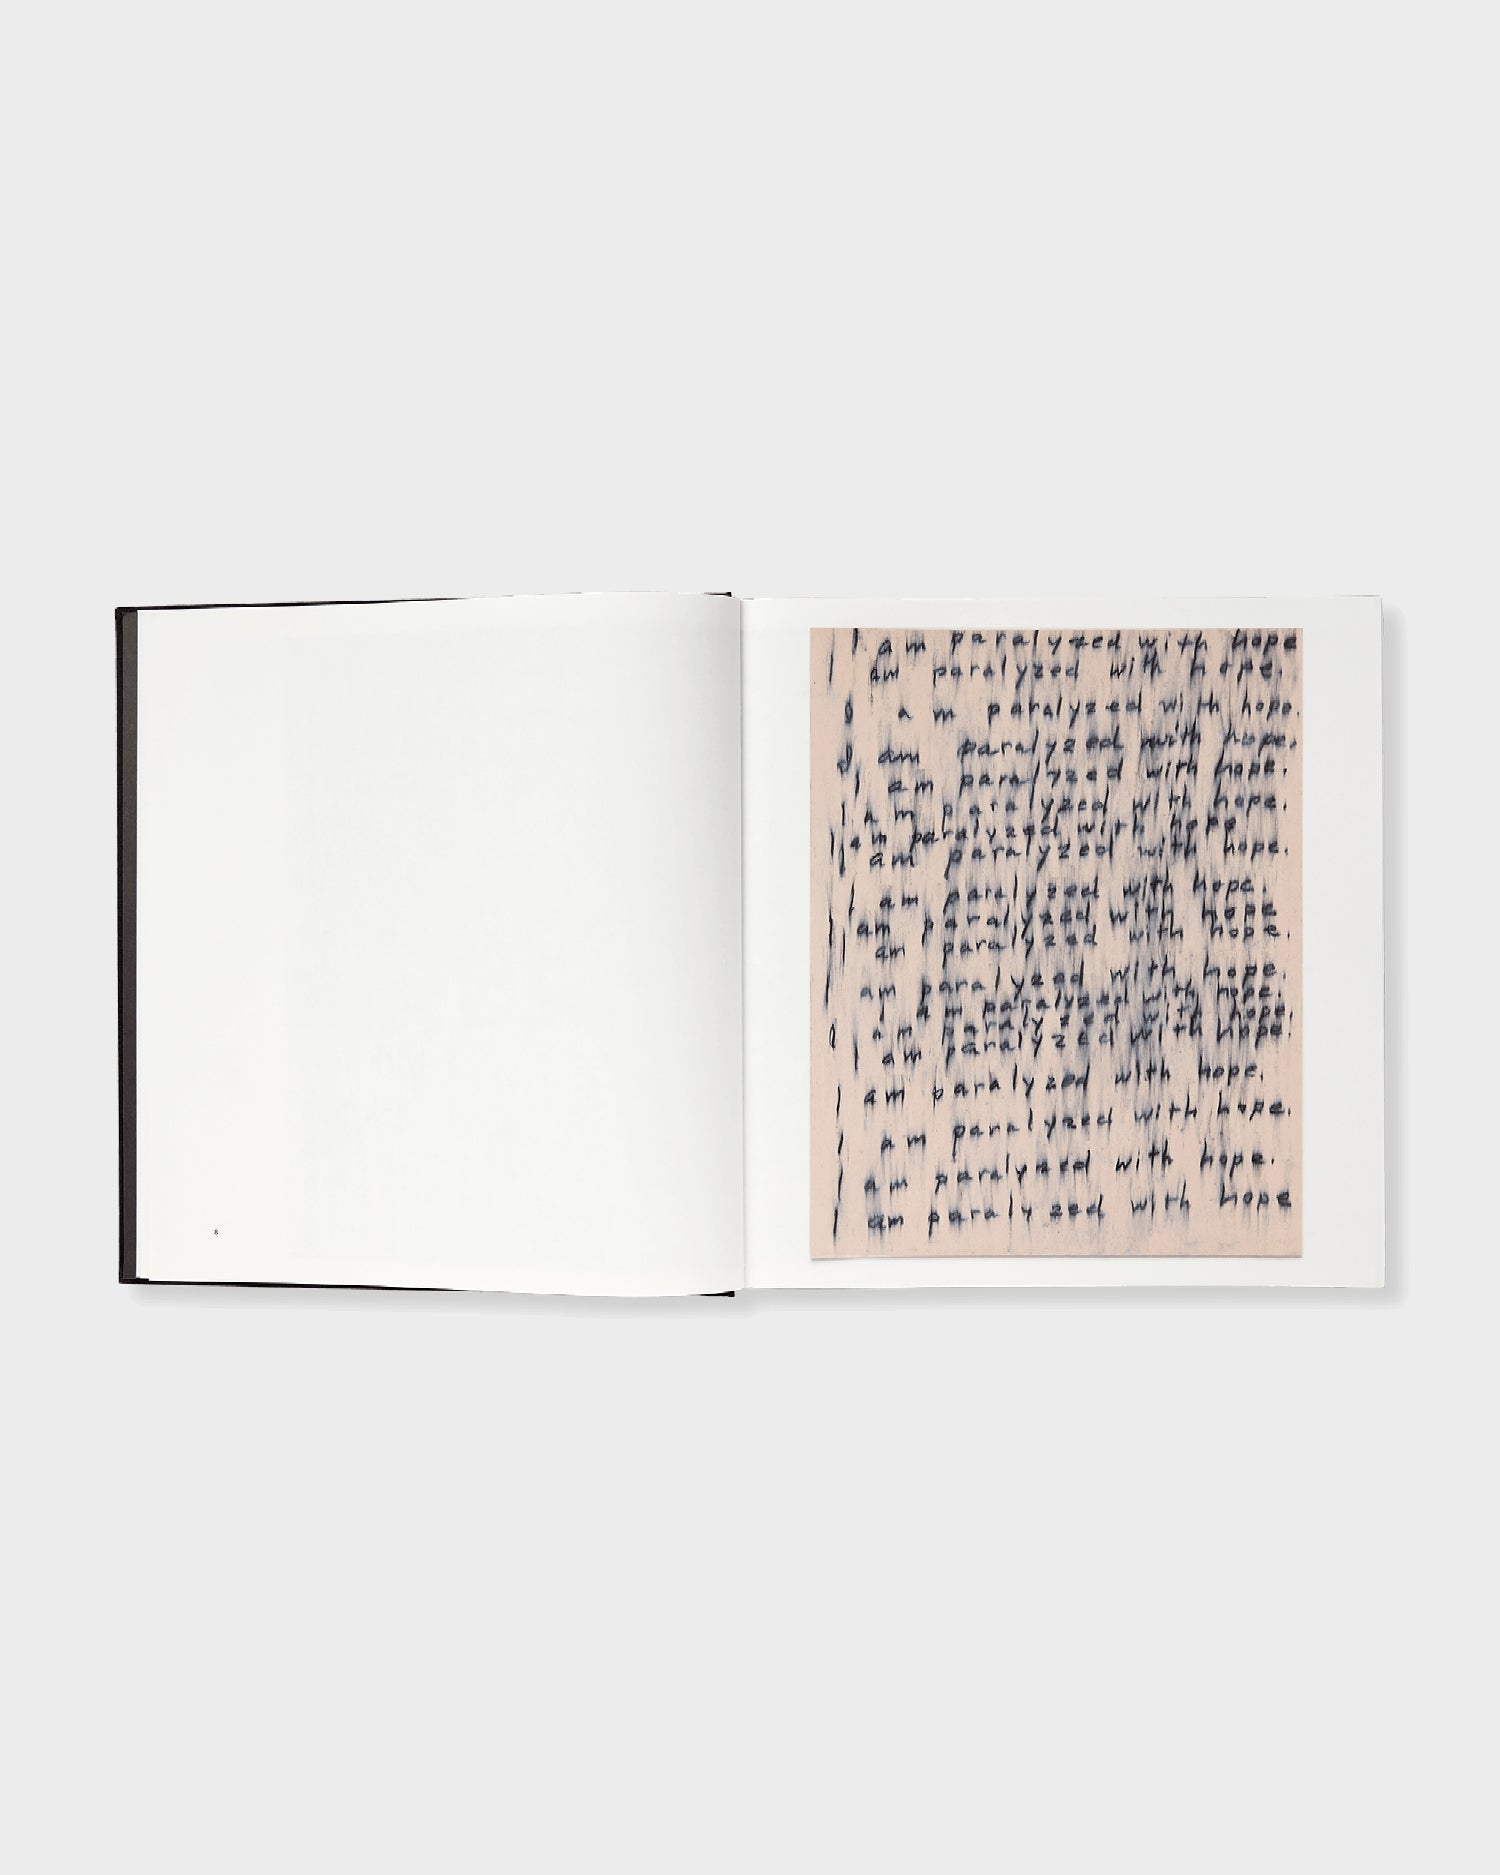 8
I am paralyzed with hope
I am paralyzed with hope.
I am paralyzed with hope.
I am paralyzed with hope.
I am paralyzed with hope.
I am paralyzed with hope.
I am paralyzed with hope
I am paralyzed with hope.
I am paralyzed with hope.
I am paralyzed with hope
I am paralyzed with hope.
I am paralyzed with hope.
I am paralyzed with hope.
I am paralyzed with hope.
I am paralyzed with hope.
I am paralyzed with hope.
I am paralyzed with hope.
I am paralyzed with hope.
I am paralyzed with hope